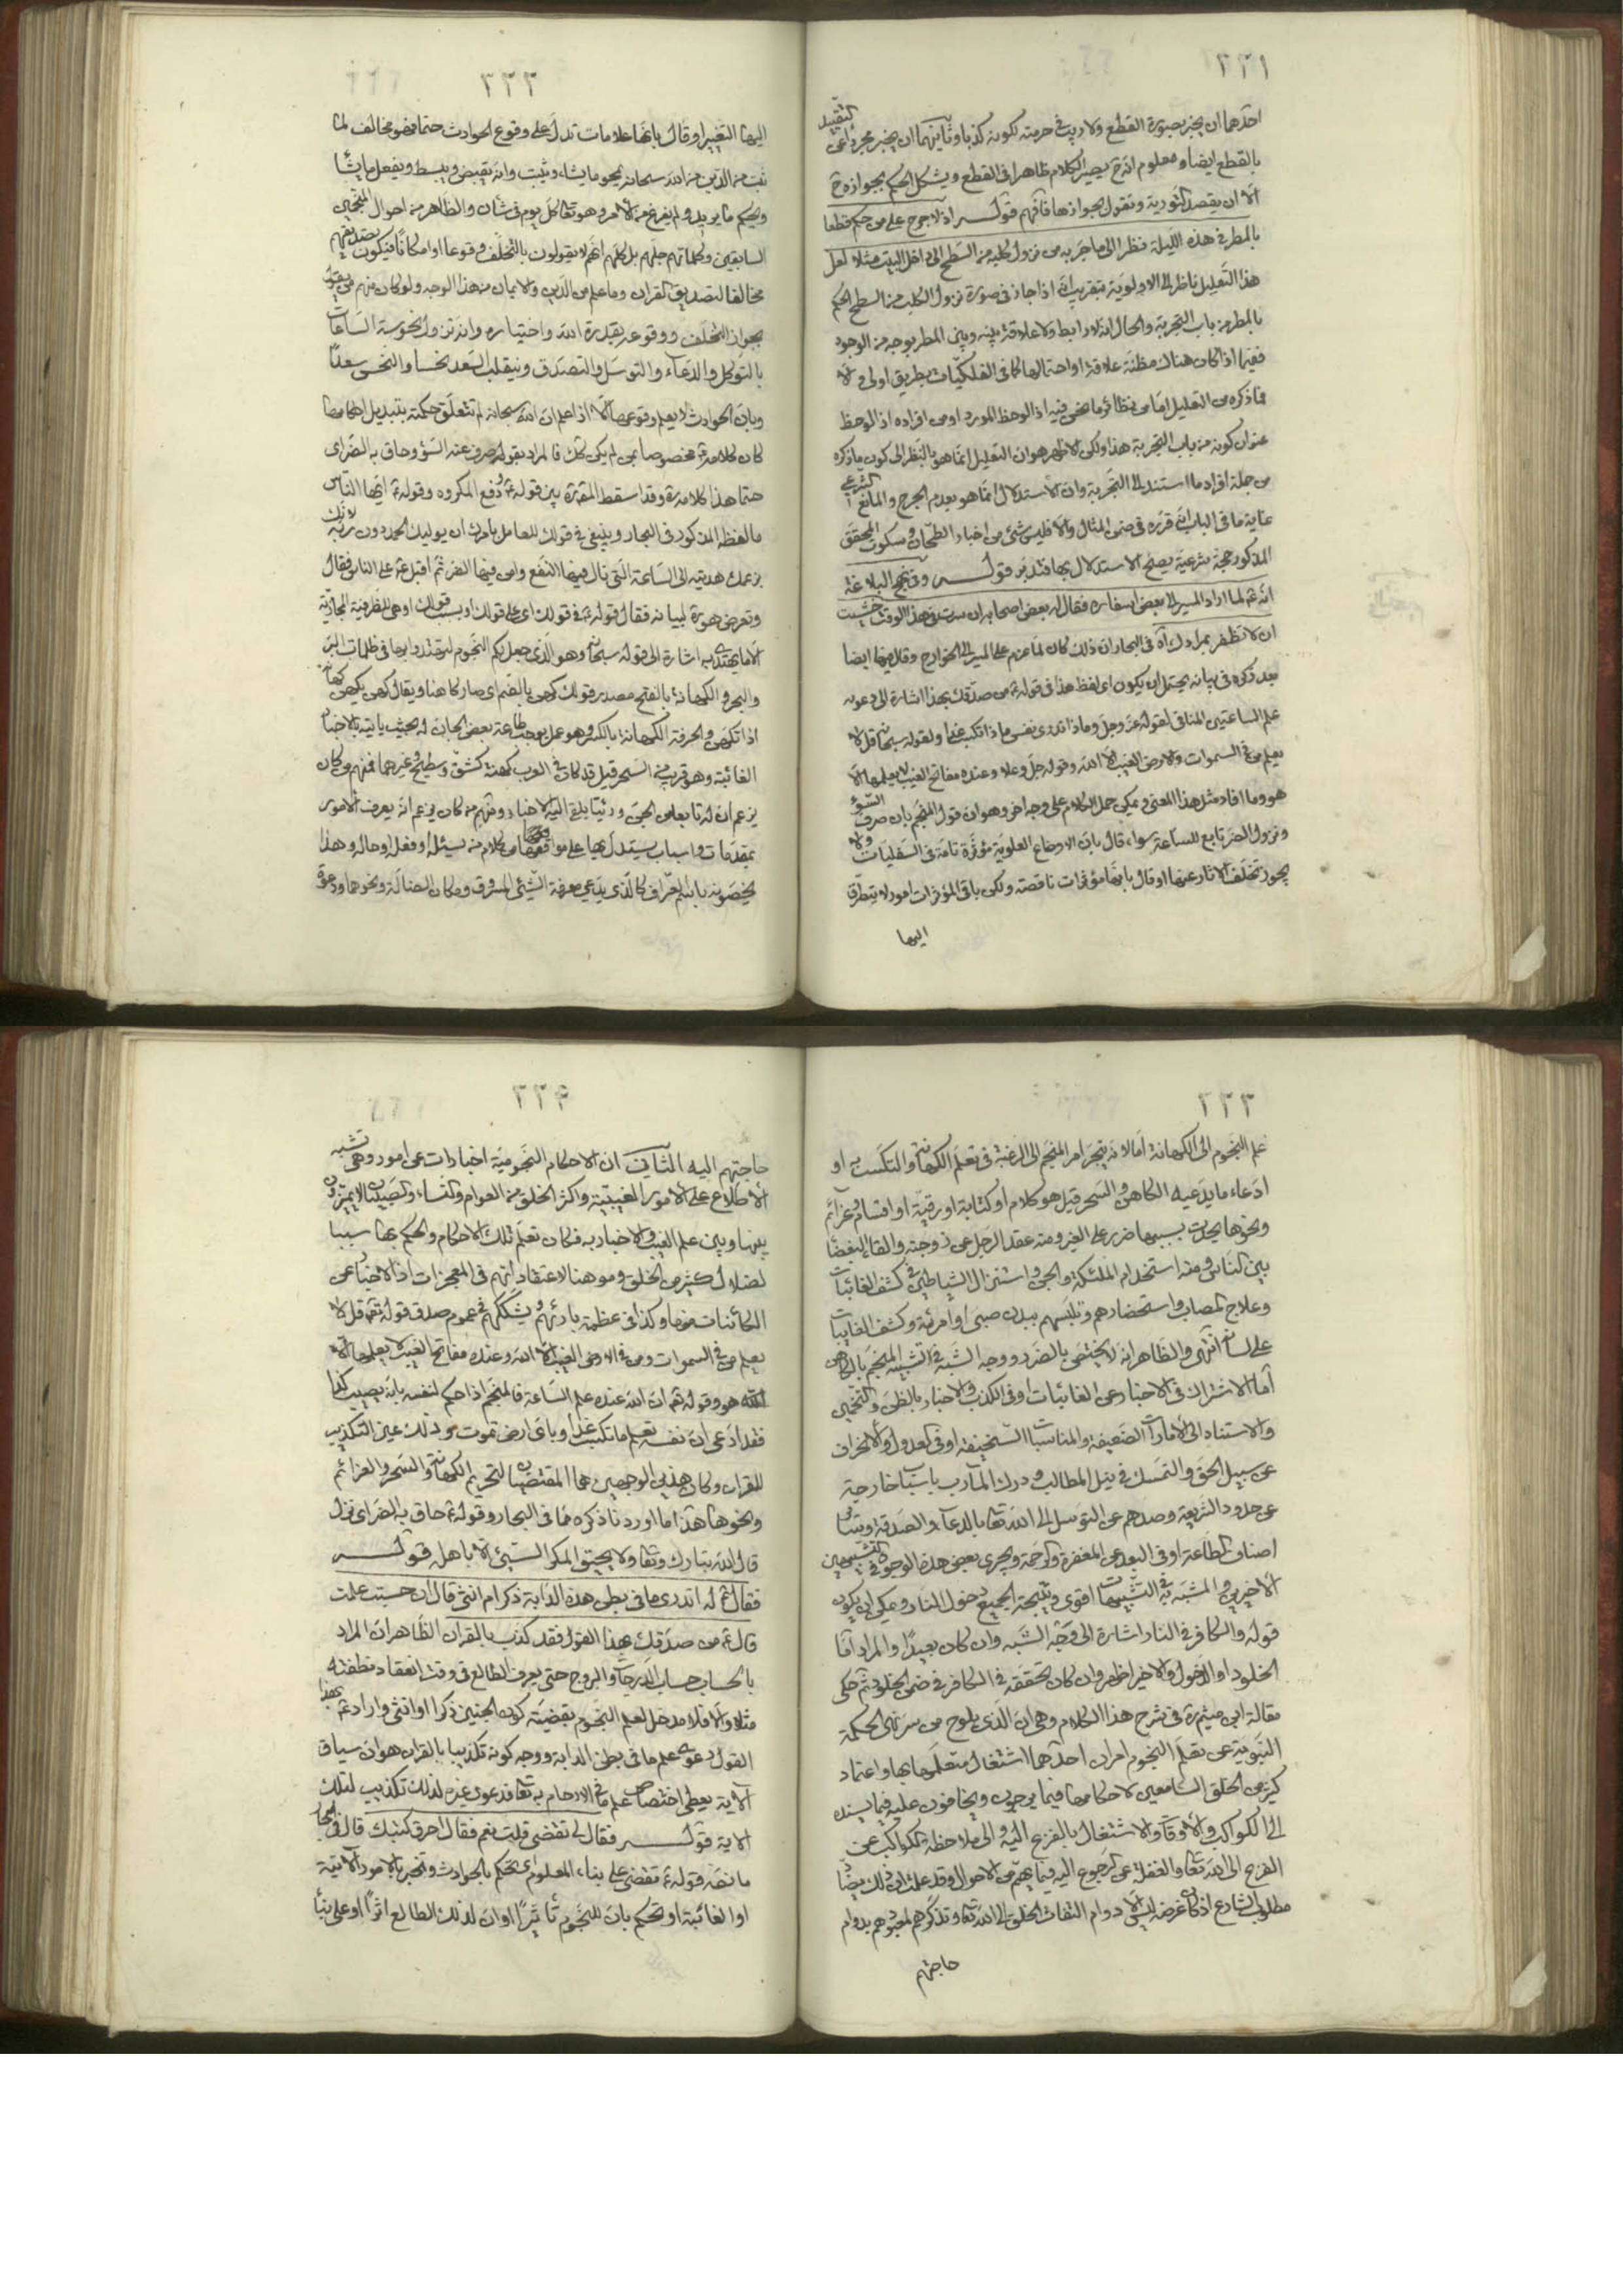 ٢٣١
احدهما ان يخبر بصورة القطع ولا ريب في حرمته لكونه كذبا وثانيهما ان يخبر مجردا عن التقييد
بالقطع ايضا ومعلوم انه ح يصير الكلام ظاهرا في القطع ويشكل الحكم بجوازه ح
الا ان يقصد التورية ونقول بجوازها فافهم قوله اذ لا حرج على من حكم قطعا
بالمطر في هذه الليلة نظرا الى ما جربه من نزول كلبه من السطح الى داخل البيت مثلا لعل
هذا التعليل ناظر الى الاولوية بتقريب انه اذا جاز في صورة نزول الكلب من السطح الحكم
بالمطر من باب التجربة والحال انه لا رابط ولا علاقة بينه وبين المطر بوجه من الوجوه
ففيما اذا كان هناك مظنة علاقة او احتمالها كما في الفلكيات بطريق اولى و
فما ذكره من التعليل اما من نظائر ما نحن فيه اذا لوحظ المورد او من افراده اذا لوحظ
عنوان كونه من باب التجربة هذا ولكن الاظهر هو ان التعليل انما هو بالنظر الى كون ما ذكره
من جملة افراد ما استند الى التجربة وان الاستدلال انما هو بعدم الحرج والمانع الشرعي
غاية ما في الباب انه قرره في ضمن المثال والا فليس شئ من اخبار الطحان وسكوت المحقق
المذكور حجة شرعية يصلح الاستدلال بها فتدبر قوله وفي نهج البلاغة
انه ع لما اراد المسير الى بعض اسفاره فقال له بعض اصحابه ان سرت في هذا الوقت خشيت
ان لا تظفر بمرادك آه في البحار ان ذلك كان لما عزم على المسير الى الخوارج وقال فيها ايضا
بعد ذكره في بيانه يحتمل ان يكون اى لفظ هذا في قوله ع من صدقك بهذا اشارة الى دعوه
علم الساعتين المنافي لقوله عز وجل وما تدري نفس ماذا تكسب غدا ولقوله سبحانه قل لا
يعلم من في السموات والارض الغيب الا الله وقوله جل وعلا وعنده مفاتح الغيب لا يعلمها الا
هو وما افاد مثل هذا المعنى ويمكن حمل الكلام على وجه اخر وهو ان قول المنجم بان صرف السوء
ونزول الضر تابع للساعة سواء قال بان الاوضاع العلوية مؤثرة تامة في السفليات ولا
يجوز تخلف الاثار عنها او قال بانها مؤثرات ناقصة ولكن باقي المؤثرات امور لا يتطرق
اليها
٢٣٢
اليها التغيير او قال بانها علامات تدل على وقوع الحوادث حتما فهو مخالف لما
ثبت من الدين من انه سبحانه يمحو ما يشاء ويثبت وانه يقبض ويبسط ويفعل ما يشاء
ويحكم ما يريد ولم يفرغ من الامر وهو تعالى كل يوم في شان والظاهر من احوال المنجمين
السابقين وكلماتهم جلهم بل كلهم انهم لا يقولون بالتخلف وقوعا او امكانا فيكون تصديقهم
مخالفا لتصديق القران وما علم من الدين والايمان من هذا الوجه ولو كان منهم من يقول
بجواز التخلف ووقوعه بقدرة الله واختياره وانه تزول نحوسة الساعات
بالتوكل والدعاء والتوسل والتصدق وينقلب السعد نحسا والنحس سعدا
وبان الحوادث لا يعلم وقوعها الا اذا علم ان الله سبحانه لم تتعلق حكمته بتبديل احكامها
كان كلامه ع مخصوصا بمن لم يكن كك فالمراد بقوله صرف عنه السوء وحاق به الضر اى
حتما هذا كلامه ره وقد اسقط المقرة بين قوله ع ودفع المكروه وقوله ع ايها الناس
ما لفظه المذكور في البحار وينبغي في قولك للعامل بامرك ان يوليك الحمد دون ربه لانك
بزعمك هديته الى الساعة التي نال فيها النفع وامن فيها الضر ثم اقبل ع على الناس فقال
وتعرض هو ره لبيانه فقال قوله ع في قولك اى على قولك او بسبب قولك او هي للظرفية المجازية
الا ما يهتدى به اشارة الى قوله سبحانه وهو الذي جعل لكم النجوم لتهتدوا بها في ظلمات البر
والبحر والكهانة بالفتح مصدر قولك كهن بالضم اى صار كاهنا ويقال كهن يكهن كهانة
اذا تكهن والحرفة الكهانة بالكسر وهو عمل يوجب طاعة بعض الجان له بحيث ياتيه بالاخبار
الغائبة وهو قريب من السحر قيل قد كان في العرب كهنة كشق وسطيح وغيرهما فمنهم من كان
يزعم ان له تابعا من الجن ورئيا يلقي اليه الاخبار ومنهم من كان يزعم انه يعرف الامور
بمقدمات واسباب يستدل بها على مواقعها من كلام من يسئله او فعله او حاله وهذا
يخصونه باسم العراف كالذي يدعي معرفة الشئ المسروق ومكان الضالة ونحوهما ودعوة
٢٣٣
علم النجوم الى الكهانة اما لانه ينجر امر المنجم الى الرغبة في تعلم الكهانة والتكسب به او
ادعاء ما يدعيه الكاهن والسحر قيل هو كلام او كتابة او رقية او اقسام وعزائم
ونحوها يحدث بسببها ضرر على الغير ومنه عقد الرجل عن زوجته والقاء البغضاء
بين الناس ومنه استخدام الملئكة والجن واستنزال الشياطين في كشف الغائبات
وعلاج المصاب واستحضارهم وتلبسهم ببدن صبي او امرئة وكشف الغايبات
على لسانه انتهى والظاهر انه لا يختص بالضرر ووجه الشبه في تشبيه المنجم بالكاهن
اما الاشتراك في الاخبار عن الغائبات او في الكذب والاخبار بالظن والتخمين
والاستناد الى الامارات الضعيفة والمناسبات السخيفة او في العدول والانحراف
عن سبيل الحق والتمسك في نيل المطالب ودرك المآرب باسباب خارجية
عن حدود الشريعة وصدهم عن التوسل الى الله تعالى بالدعاء والصدقة وسائر
اصناف الطاعة او في البعد عن المغفرة والرحمة ويجرى بعض هذه الوجوه في التشبيهين
الاخيرين والمشبه به في التشبيهات اقوى ونتيجة الجميع دخول النار ويمكن ان يكون
قوله والكافر في النار اشارة الى وجه الشبه وان كان بعيدا والمراد اما
الخلود او الدخول والاخير اظهر وان كان تحققه في الكافر في ضمن الخلود ثم حكى
مقالة ابن ميثم ره في شرح هذا الكلام وهي ان الذي يلوح من سر نهى الحكمة
النبوية عن تعلم النجوم امران احدهما اشتغال متعلمها بها واعتماد
كثير من الخلق السامعين لاحكامها فيما يرجون ويخافون عليه فيما يسنده
الى الكواكب والاوقات والاشتغال بالفزع اليه والى ملاحظة الكواكب عن
الفزع الى الله تعالى والغفلة عن الرجوع اليه فيما يهم من الاحوال وقد علمت ان ذلك يضاد
مطلوب الشارع اذ كان غرضه ليس الا دوام التفات الخلق الى الله تعالى وتذكرهم لمعبودهم بدوام
حاجتهم
٢٣٤
حاجتهم اليه الثاني ان الاحكام النجومية اخبارات عن امور وهي تشبه
الاطلاع على الامور الغيبية واكثر الخلق من العوام والنساء والصبيان لا يتميزون
بينها وبين علم الغيب والاخبار به فكان تعلم تلك الاحكام والحكم بها سببا
لضلال كثير من الخلق وموهنا لاعتقاداتهم في المعجزات اذ الاخبار عن
الكائنات منها وكذا في عظمة بارئهم ويشككهم في عموم صدق قوله تعالى قل لا
يعلم من في السموات ومن في الارض الغيب الا الله وعنده مفاتح الغيب لا يعلمها الا
هو وقوله تعالى ان الله عنده علم الساعة فالمنجم اذا حكم لنفسه بانه يصيب كذا
فقد ادعى ان نفسه تعلم ما تكسب غدا وباى ارض تموت وذلك عين التكذيب
للقران وكان هذين الوجهين هما المقتضيان لتحريم الكهانة والسحر والعزائم
ونحوها هذا ما اوردنا ذكره مما في البحار وقوله ع حاق به الضر اى نزل
قال الله تبارك وتعالى ولا يحيق المكر السيئ الا باهله قوله
فقال ع له اتدري ما في بطن هذه الدابة ذكر ام انثى قال ان حسبت علمت
قال ع من صدقك بهذا القول فقد كذب بالقران الظاهر ان المراد
بالحساب حساب الدرجات والبروج حتى يعرف الطالع في وقت انعقاد نطفته
مثلا والا فلا مدخل لعلم النجوم بقضية كون الجنين ذكرا او انثى واراد ع بهذا
القول دعوى علم ما في بطن الدابة ووجه كونه تكذيبا بالقران هو ان سياق
الاية يعطي اختصاص علم ما في الارحام به تعالى فدعوى غيره لذلك تكذيب لتلك
الاية قوله فقال لى تقضي قلت نعم فقال احرق كتبك قال في البحار
ما نصه قوله ع تقضي على بناء المعلوم اى تحكم بالحوادث وتخبر بالامور الآتية
او الغائبة او تحكم بان للنجوم تاثيرا او ان لذلك الطالع اثرا او على بناء